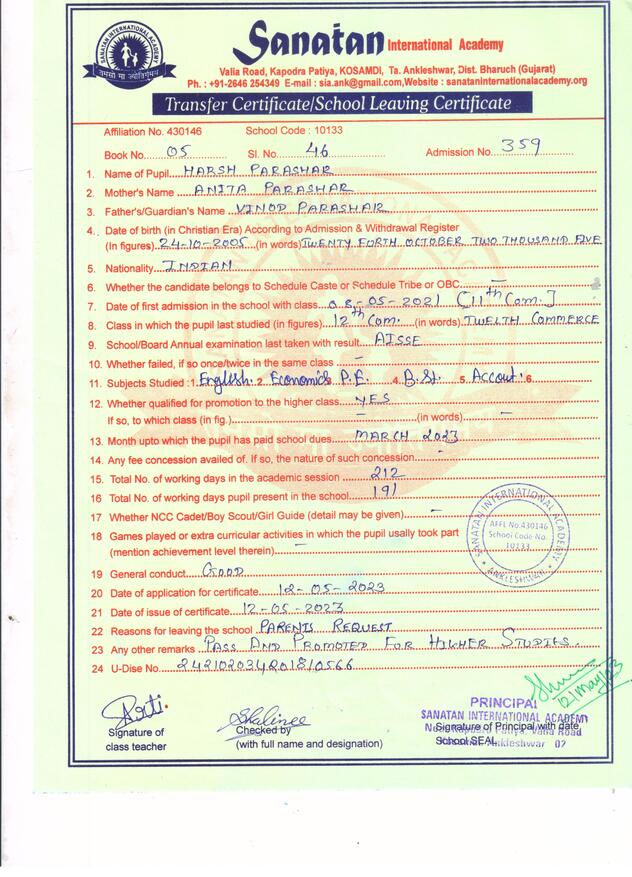 SANATAN INTERNATIONAL ACADEMY
तमसो मा ज्योतिर्गमय
Sanatan International Academy
Valia Road, Kapodra Patiya, KOSAMDI, Ta. Ankleshwar, Dist. Bharuch (Gujarat)
Ph. : +91-2646 254349 E-mail : sia.ank@gmail.com,Website : sanataninternationalacademy.org
Transfer Certificate/School Leaving Certificate
Affiliation No. 430146 School Code : 10133
Book No. 05 Sl. No. 46 Admission No. 359
1. Name of Pupil HARSH PARASHAR
2. Mother's Name ANITA PARASHAR
3. Father's/Guardian's Name VINOD PARASHAR
4. Date of birth (in Christian Era) According to Admission & Withdrawal Register
(In figures) 24-10-2005 (in words) TWENTY FORTH OCTOBER TWO THOUSAND FIVE
5. Nationality INDIAN
6. Whether the candidate belongs to Schedule Caste or Schedule Tribe or OBC —
7. Date of first admission in the school with class 08-05-2021 (11th Com.)
8. Class in which the pupil last studied (in figures) 12th Com. (in words) TWELTH COMMERCE
9. School/Board Annual examination last taken with result AISSE
10. Whether failed, if so once/twice in the same class –
11. Subjects Studied : 1. English 2. Economics 3. P.E. 4. B.St. 5. Accout. 6.
12. Whether qualified for promotion to the higher class YES
If so, to which class (in fig.) – (in words) –
13. Month upto which the pupil has paid school dues MARCH 2023
14. Any fee concession availed of. If so, the nature of such concession -
15. Total No. of working days in the academic session 212
16 Total No. of working days pupil present in the school 191
17 Whether NCC Cadet/Boy Scout/Girl Guide (detail may be given) –
18 Games played or extra curricular activities in which the pupil usally took part
(mention achievement level therein) –
SANATAN INTERNATIONAL ACADEMY
AFFL No.430146
School Code No.
10133
ANKLESHWAR
19 General conduct GOOD
20 Date of application for certificate 12-05-2023
21 Date of issue of certificate 12-05-2023
22 Reasons for leaving the school PARENTS REQUEST
23 Any other remarks PASS AND PROMOTED FOR HIGHER STUDIES.
24 U-Dise No.
12/May/23
PRINCIPAL
SANATAN INTERNATIONAL ACADEMY
Arti. Shalinee
Signature of Checked by Signature of Principal with date
class teacher (with full name and designation) School SEAL
Ankleshwar 02